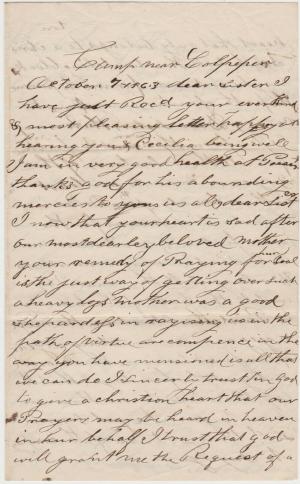 Camp near Colpeper
October 7 1863 dear Sister I
have just Rec'd your ever kind
& most pleasing letter happy at
hearing you & Cecilia being well
I am in very good health at
thanks god for his abounding
mercies to us all dear Sist
I now that your heart is sad after
our most dearley beloved mother
your remedy of Praying for hur Soul
is the just way of getting over such
a heavy loss mother was a good
shepardess in raysing us in the
path of virtue are compence in the
way you have mentioned is all that
we can do I sincerly trust in God
to give a christian heart that our
Prayers may be heard in heaven
in hur behalf I trust that god
will grant me the Request of a